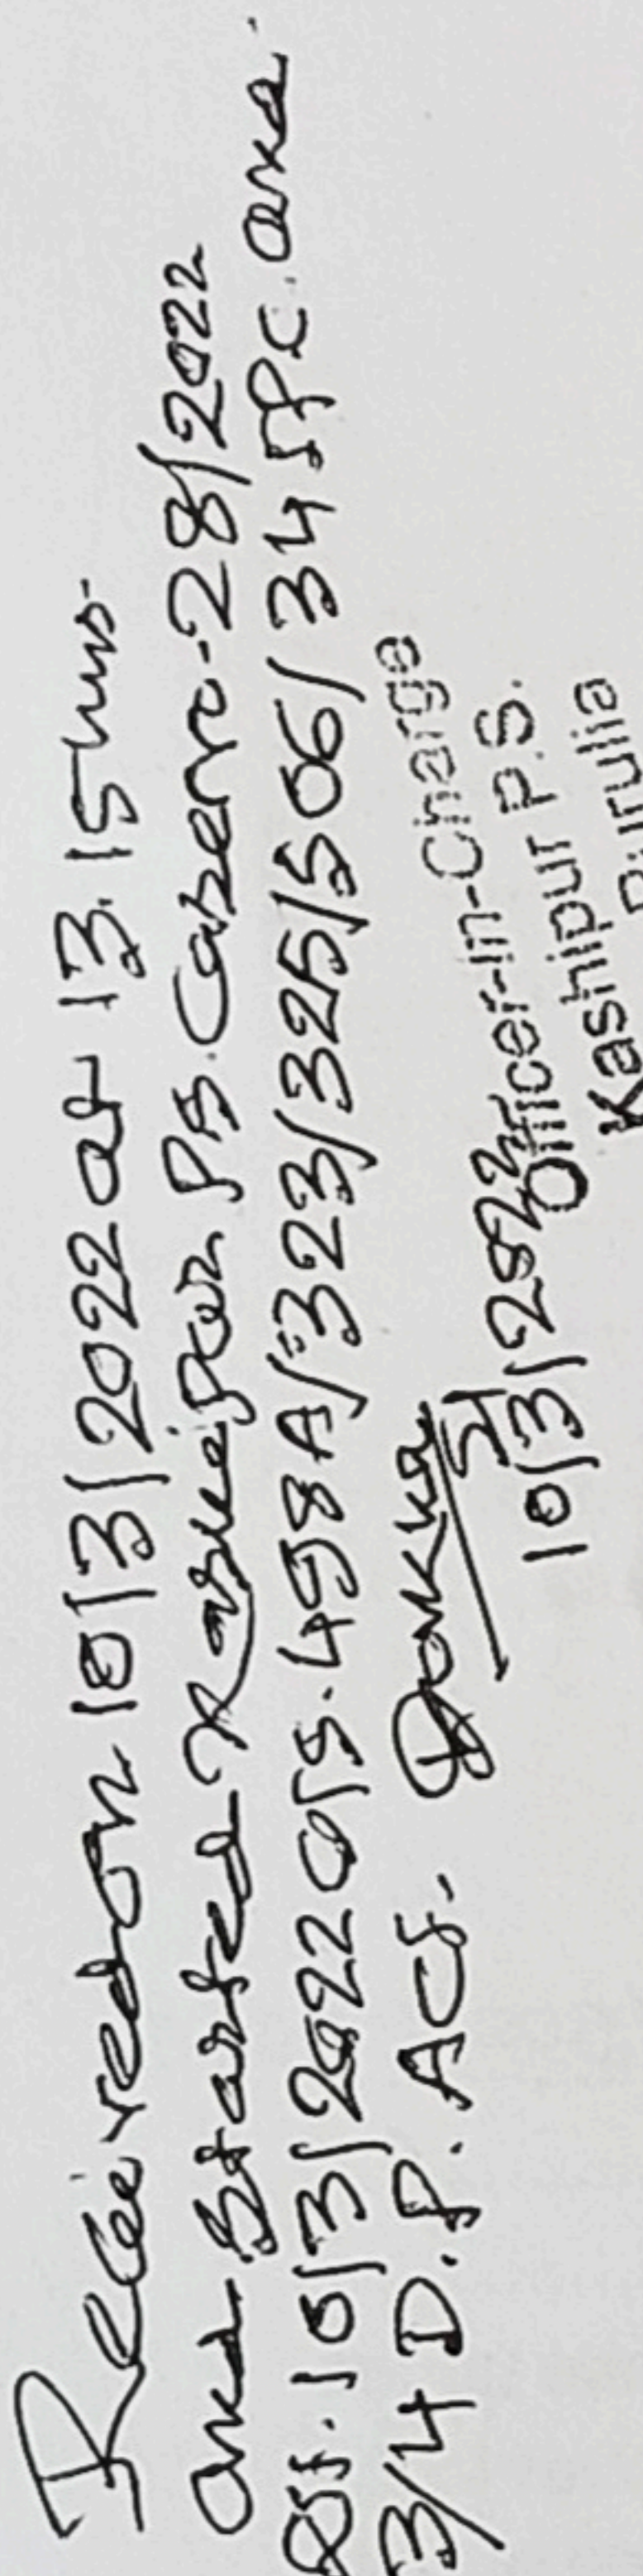 Received on 10/3/2022 at 13.15 hrs.
and started Kashipur P.S. Case no-28/2022
Dt. 10/3/2022 U/S. 498A/323/325/506/34 IPC. and
3/4 D.P. Act.
10/3/2022
Officer-in-Charge
Kashipur P.S.
Purulia